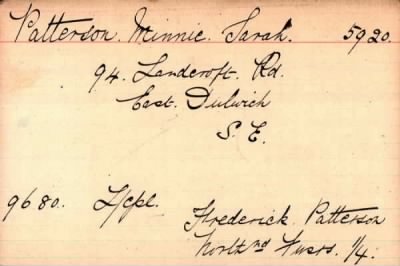 Patterson. Minnie. Sarah. 5920.
94. Landcroft. Rd.
East. Dulwich
S. E.
9680. L/cpl. Frederick. Patterson
North nd Fusrs. 1/4.